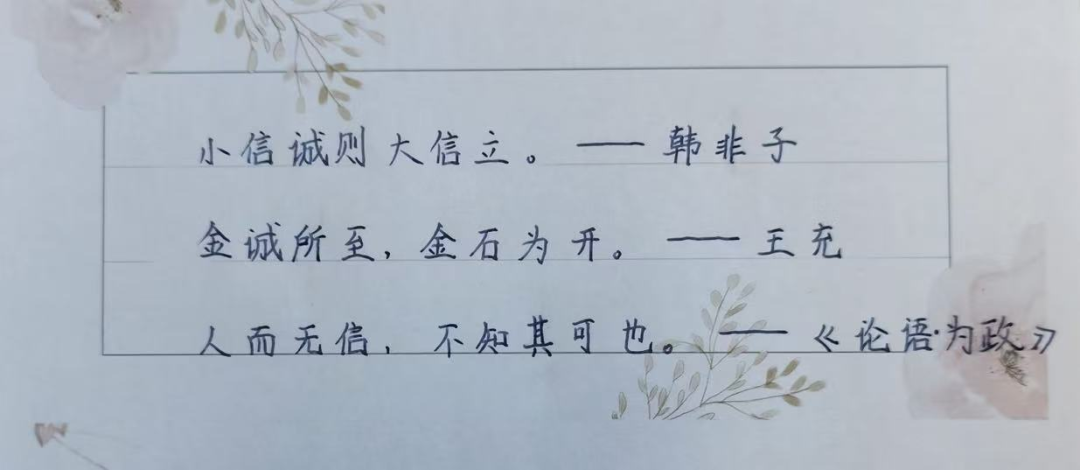 小信诚则大信立。——韩非子
金诚所至，金石为开。——王充
人而无信，不知其可也。——《论语·为政》